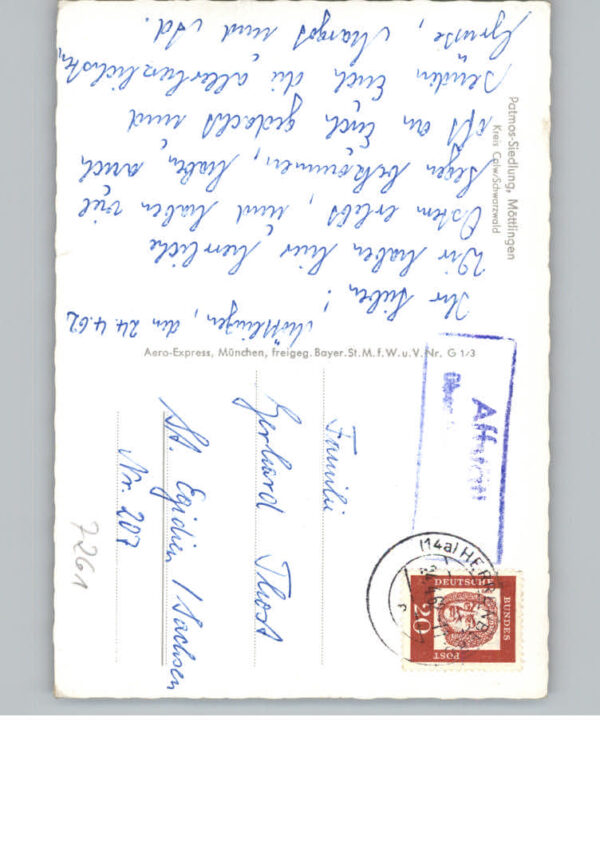 Patmos-Siedlung, Möttlingen
Kreis Calw/Schwarzwald
Möttlingen, den 24.4.62
Ihr Lieben!
Wir haben hier herrliche
Ostern erlebt, und haben viel
Segen bekommen, haben auch
oft an Euch gedacht und
senden Euch die allerherzlichsten
Grüsse, Margot und Ad.
Aero-Express, München, freigeg. Bayer.St.M.f.W.u.V.Nr. G 1/3
(14a)
DEUTSCHE
BUNDES
POST
20
Familie
Gerhard Thost
St. Egidien / Sachsen
Nr. 207
7261